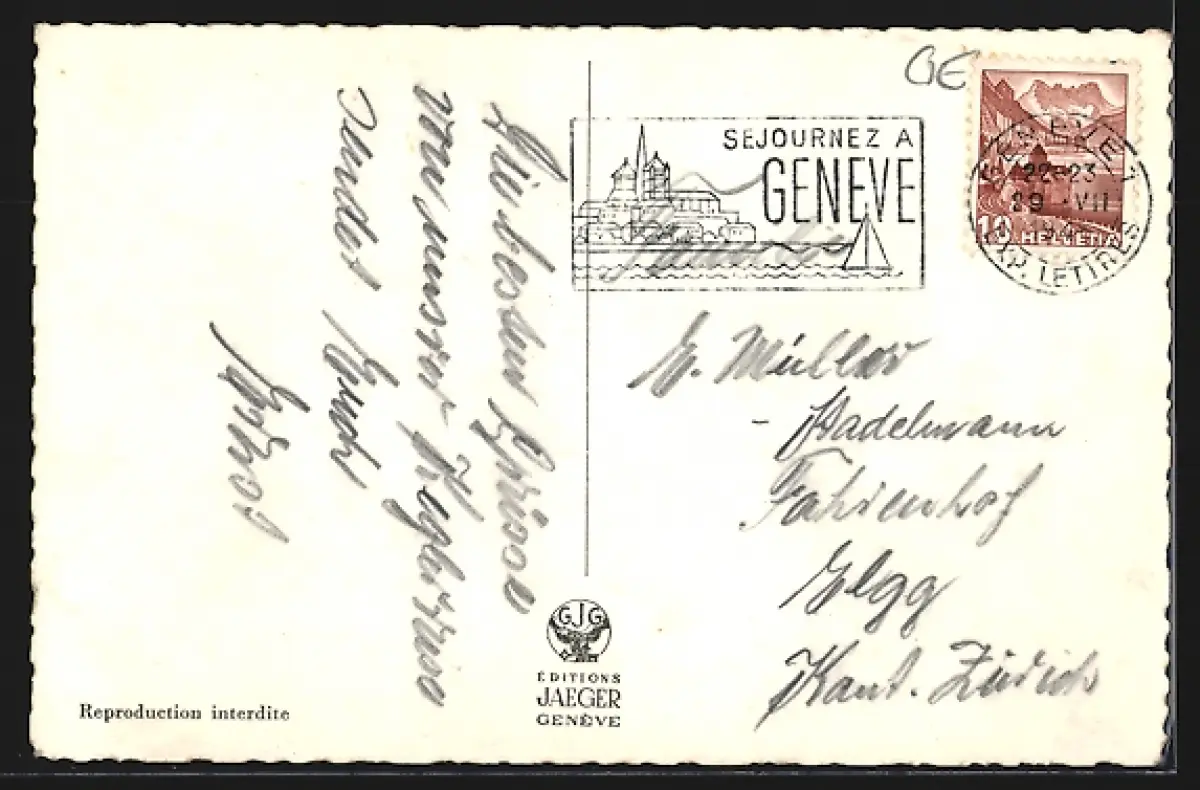 Die besten Grüsse
von unserer
sendet
GE
SEJOURNEZ A
GENEVE
GENEVE 1
22-23
29 VII
EXP. LETTRES
10
HELVETIA
Familie
E. Müller
- Stadelmann
Fahrenhof
Elgg
Kant. Zürich
GJG
ÉDITIONS
JAEGER
GENÈVE
Reproduction interdite